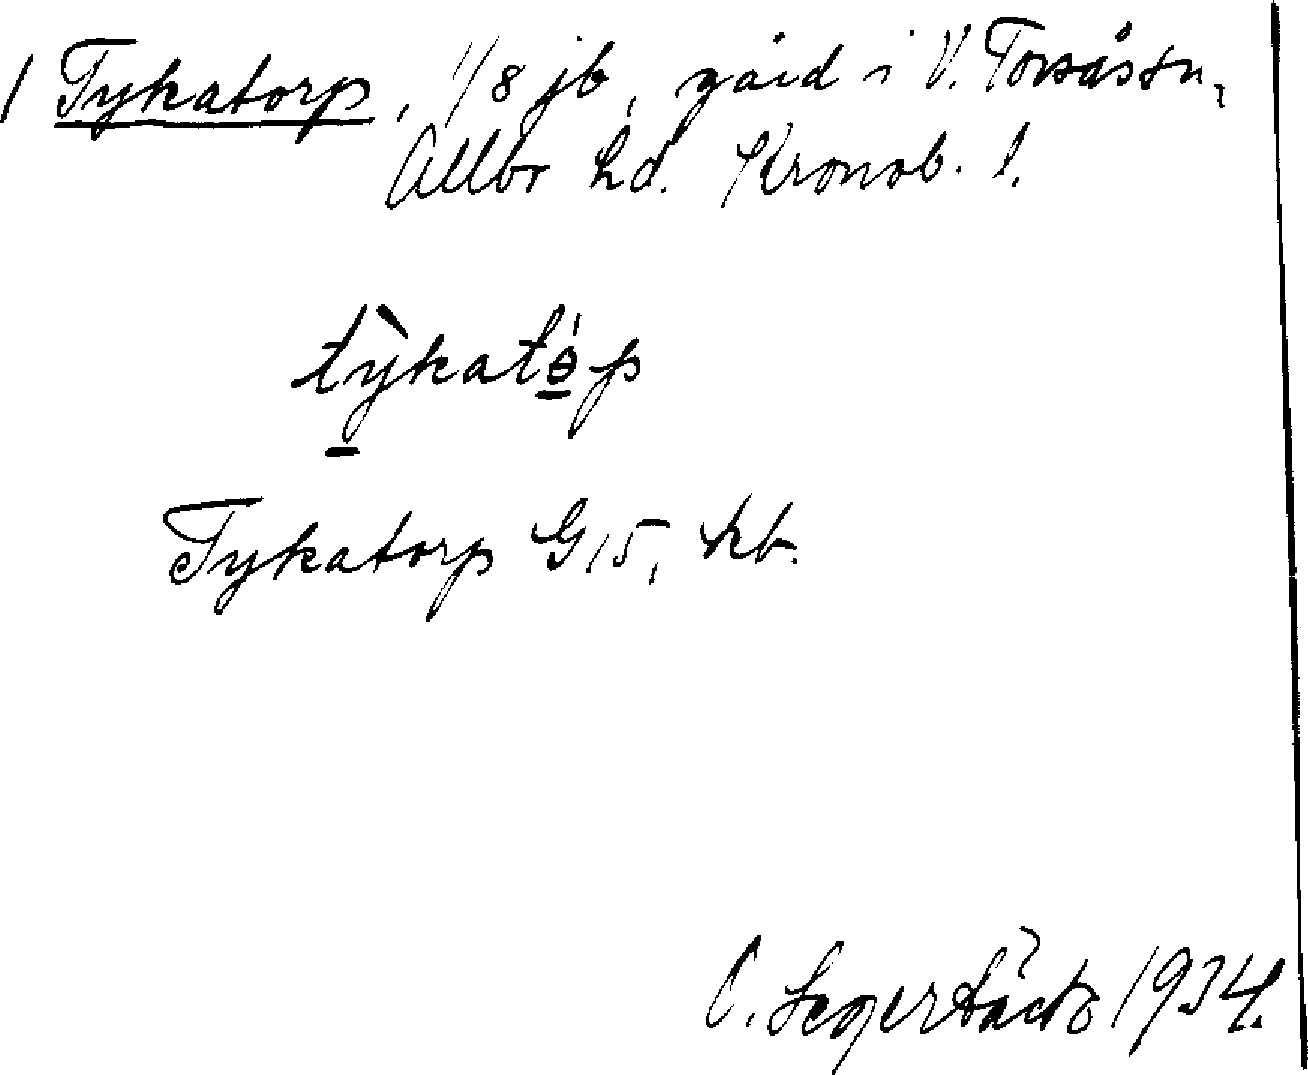 / Tykatorp, 1/8 jb, gård i V. Torsås sn,
Allbo hd. Kronob. l.
tỳkatɵ́p
Tykatorp G15, kb.
1934.